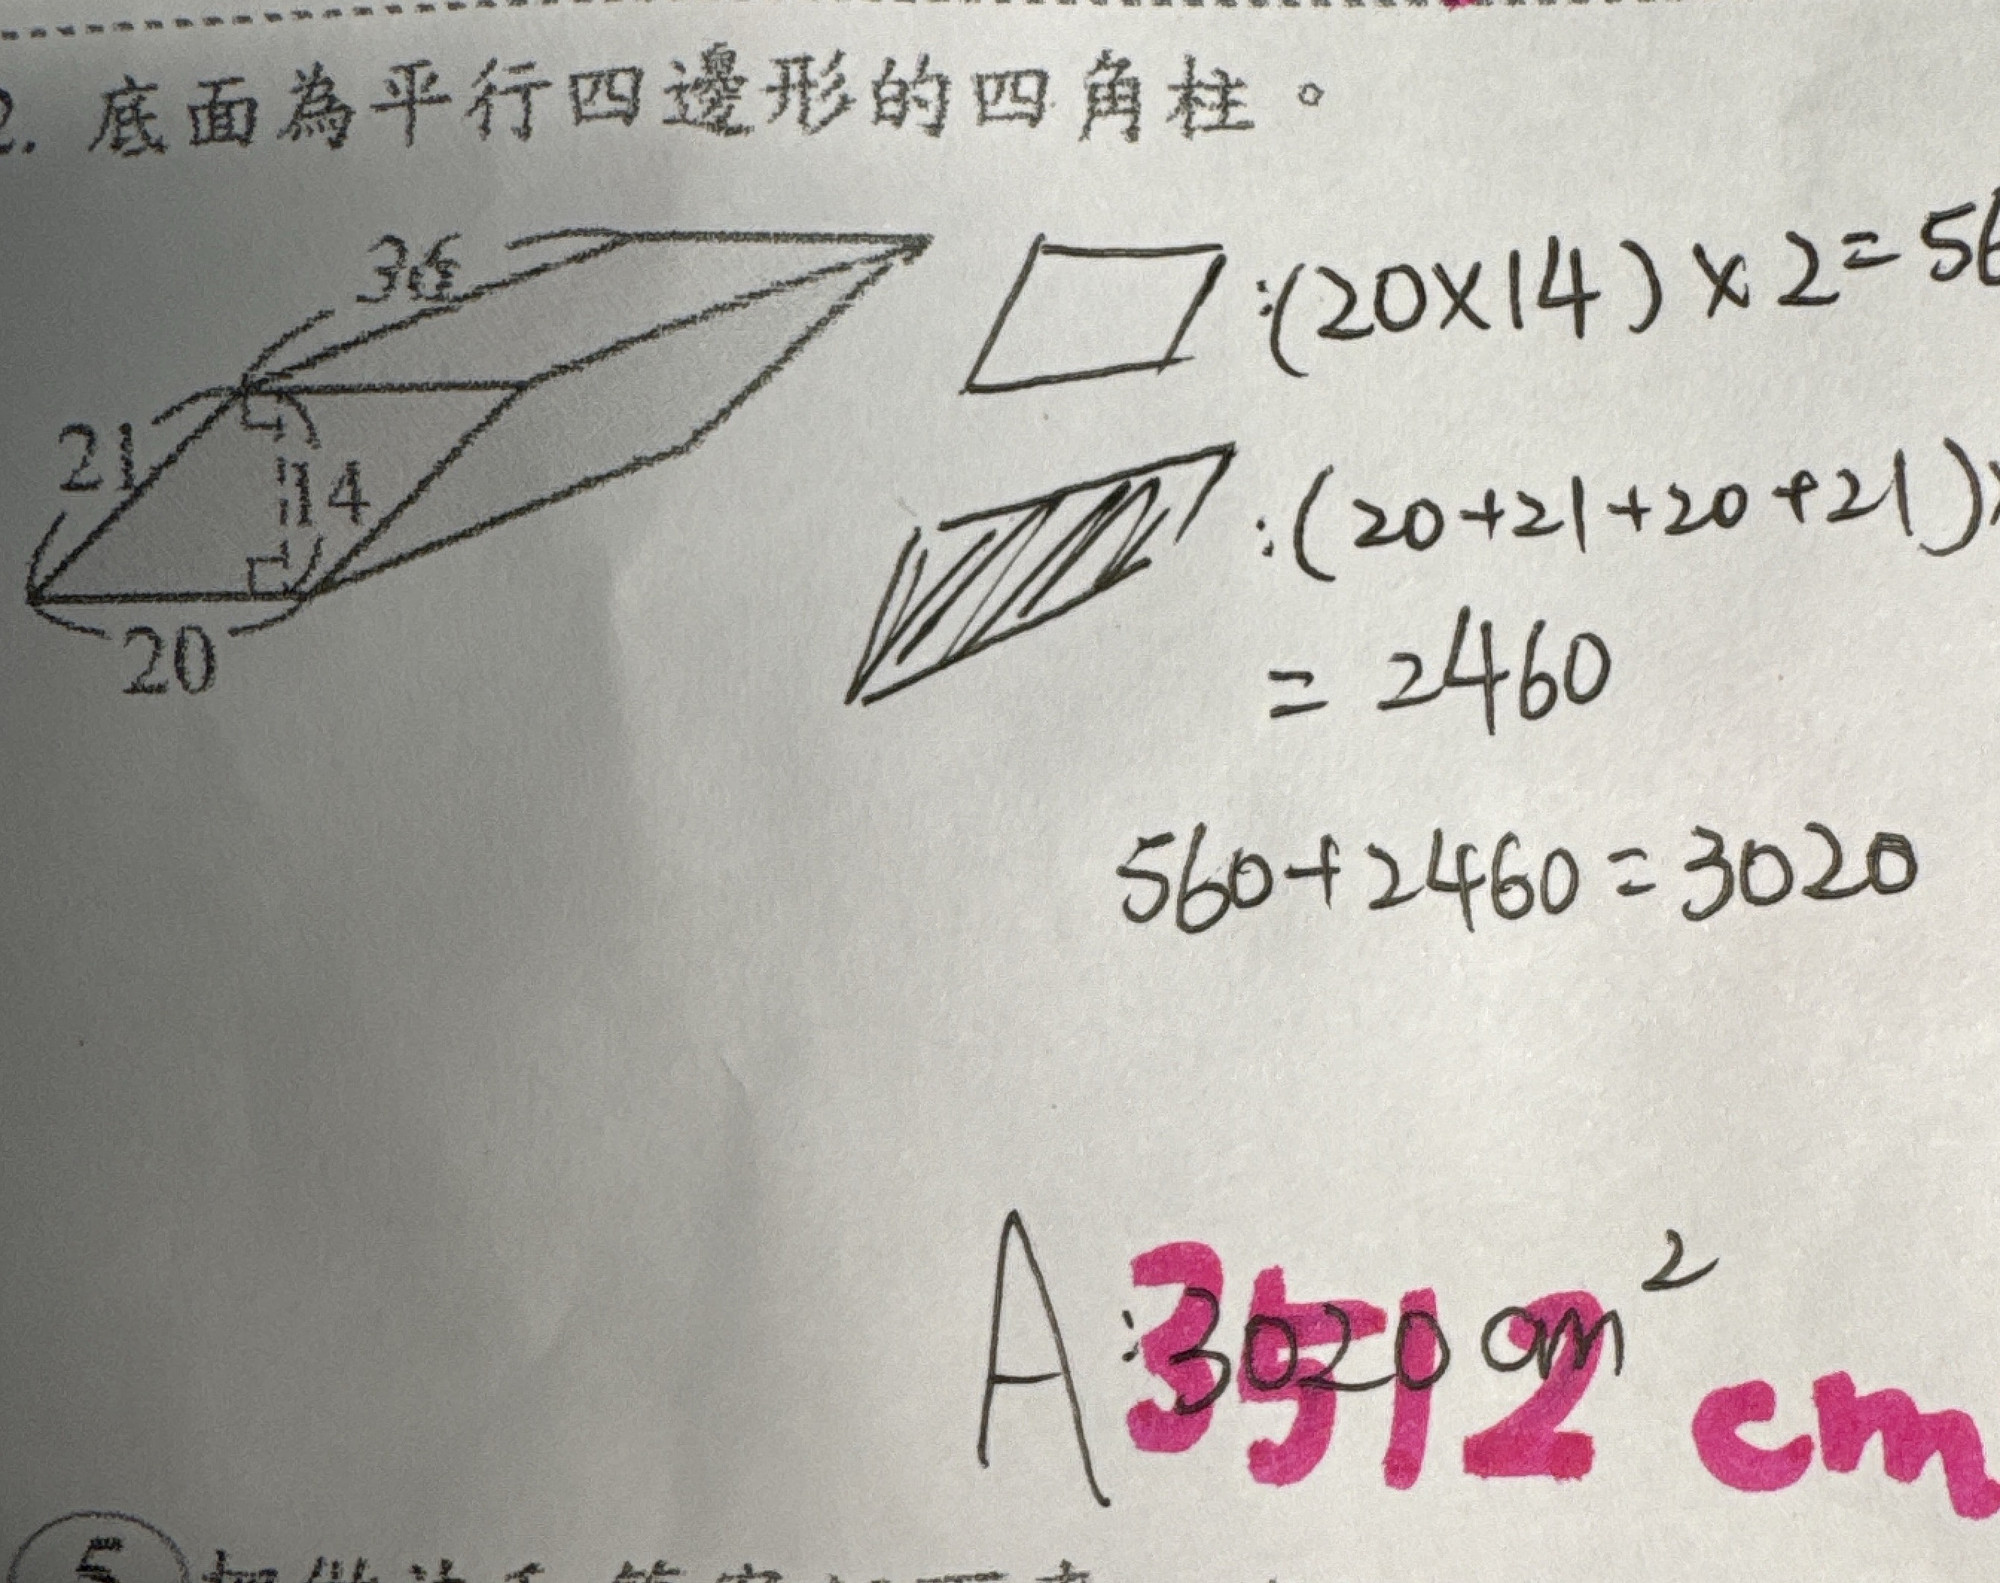 2. 底面為平行四邊形的四角柱。
36
21
14
20
:(20×14)×2=56
:(20+21+20+21)×
=2460
560+2460=3020
A:3020cm²
3512 cm
5